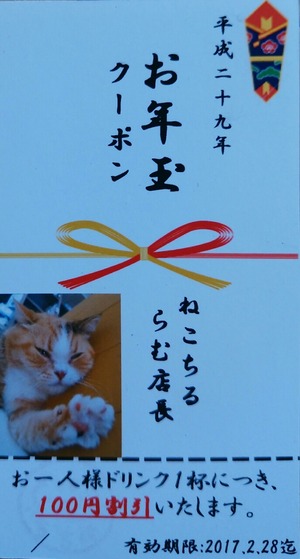 平成二十九年
お年玉
クーポン
ねこちる
らむ店長
お一人様ドリンク1杯につき、
100円割引いたします。
/
有効期限:2017.2.28迄